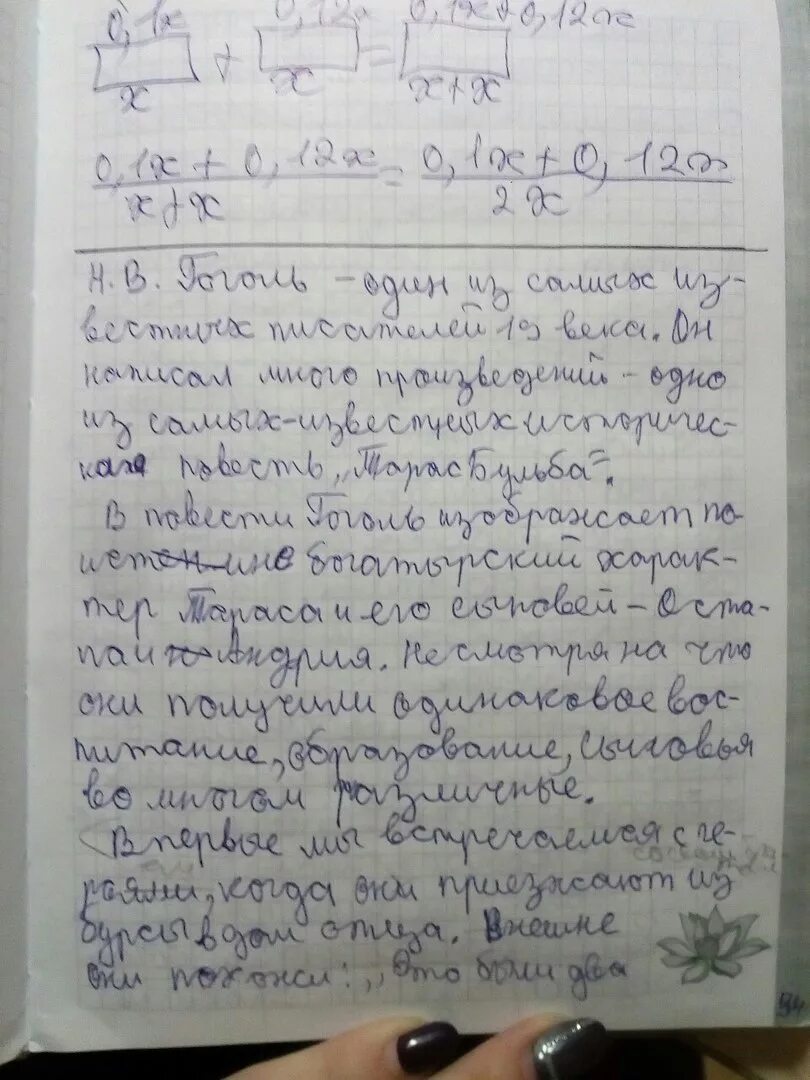 0,1x 0,12x 0,1x+0,12x
+ =
x x x+x
0,1x + 0,12x = 0,1x+0,12x
x+x 2x
Н.В. Гоголь – один из самых из-
вестных писателей 19 века. Он
написал много произведений – одно
из самых-известных историчес-
кая повесть „Тарас Бульба".
В повести Гоголь изображает по-
истенине богатырский харак-
тер Тараса и его сыновей – Оста-
па и Андрия. Несмотря на что
они получили одинаковое вос-
питание, образование, сыновья
во многом различные.
Впервые мы встречаемся с ге-
роями, когда они приезжают из
бурсы в дом отца. Внешне
они похожи: „Это были два
94